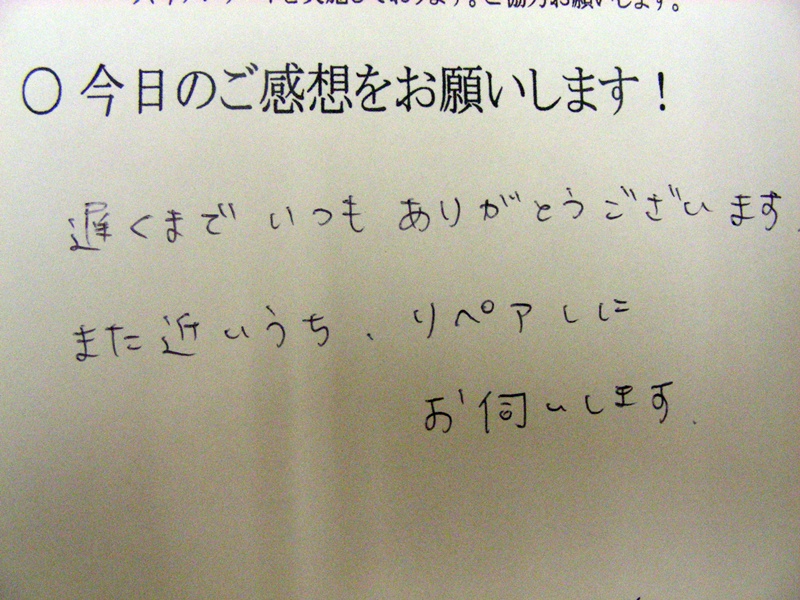 を実施しております。ご協力お願いします。
○ 今日のご感想をお願いします！
遅くまで いつも ありがとうございます
また近いうち、リペアしに
お伺いします.